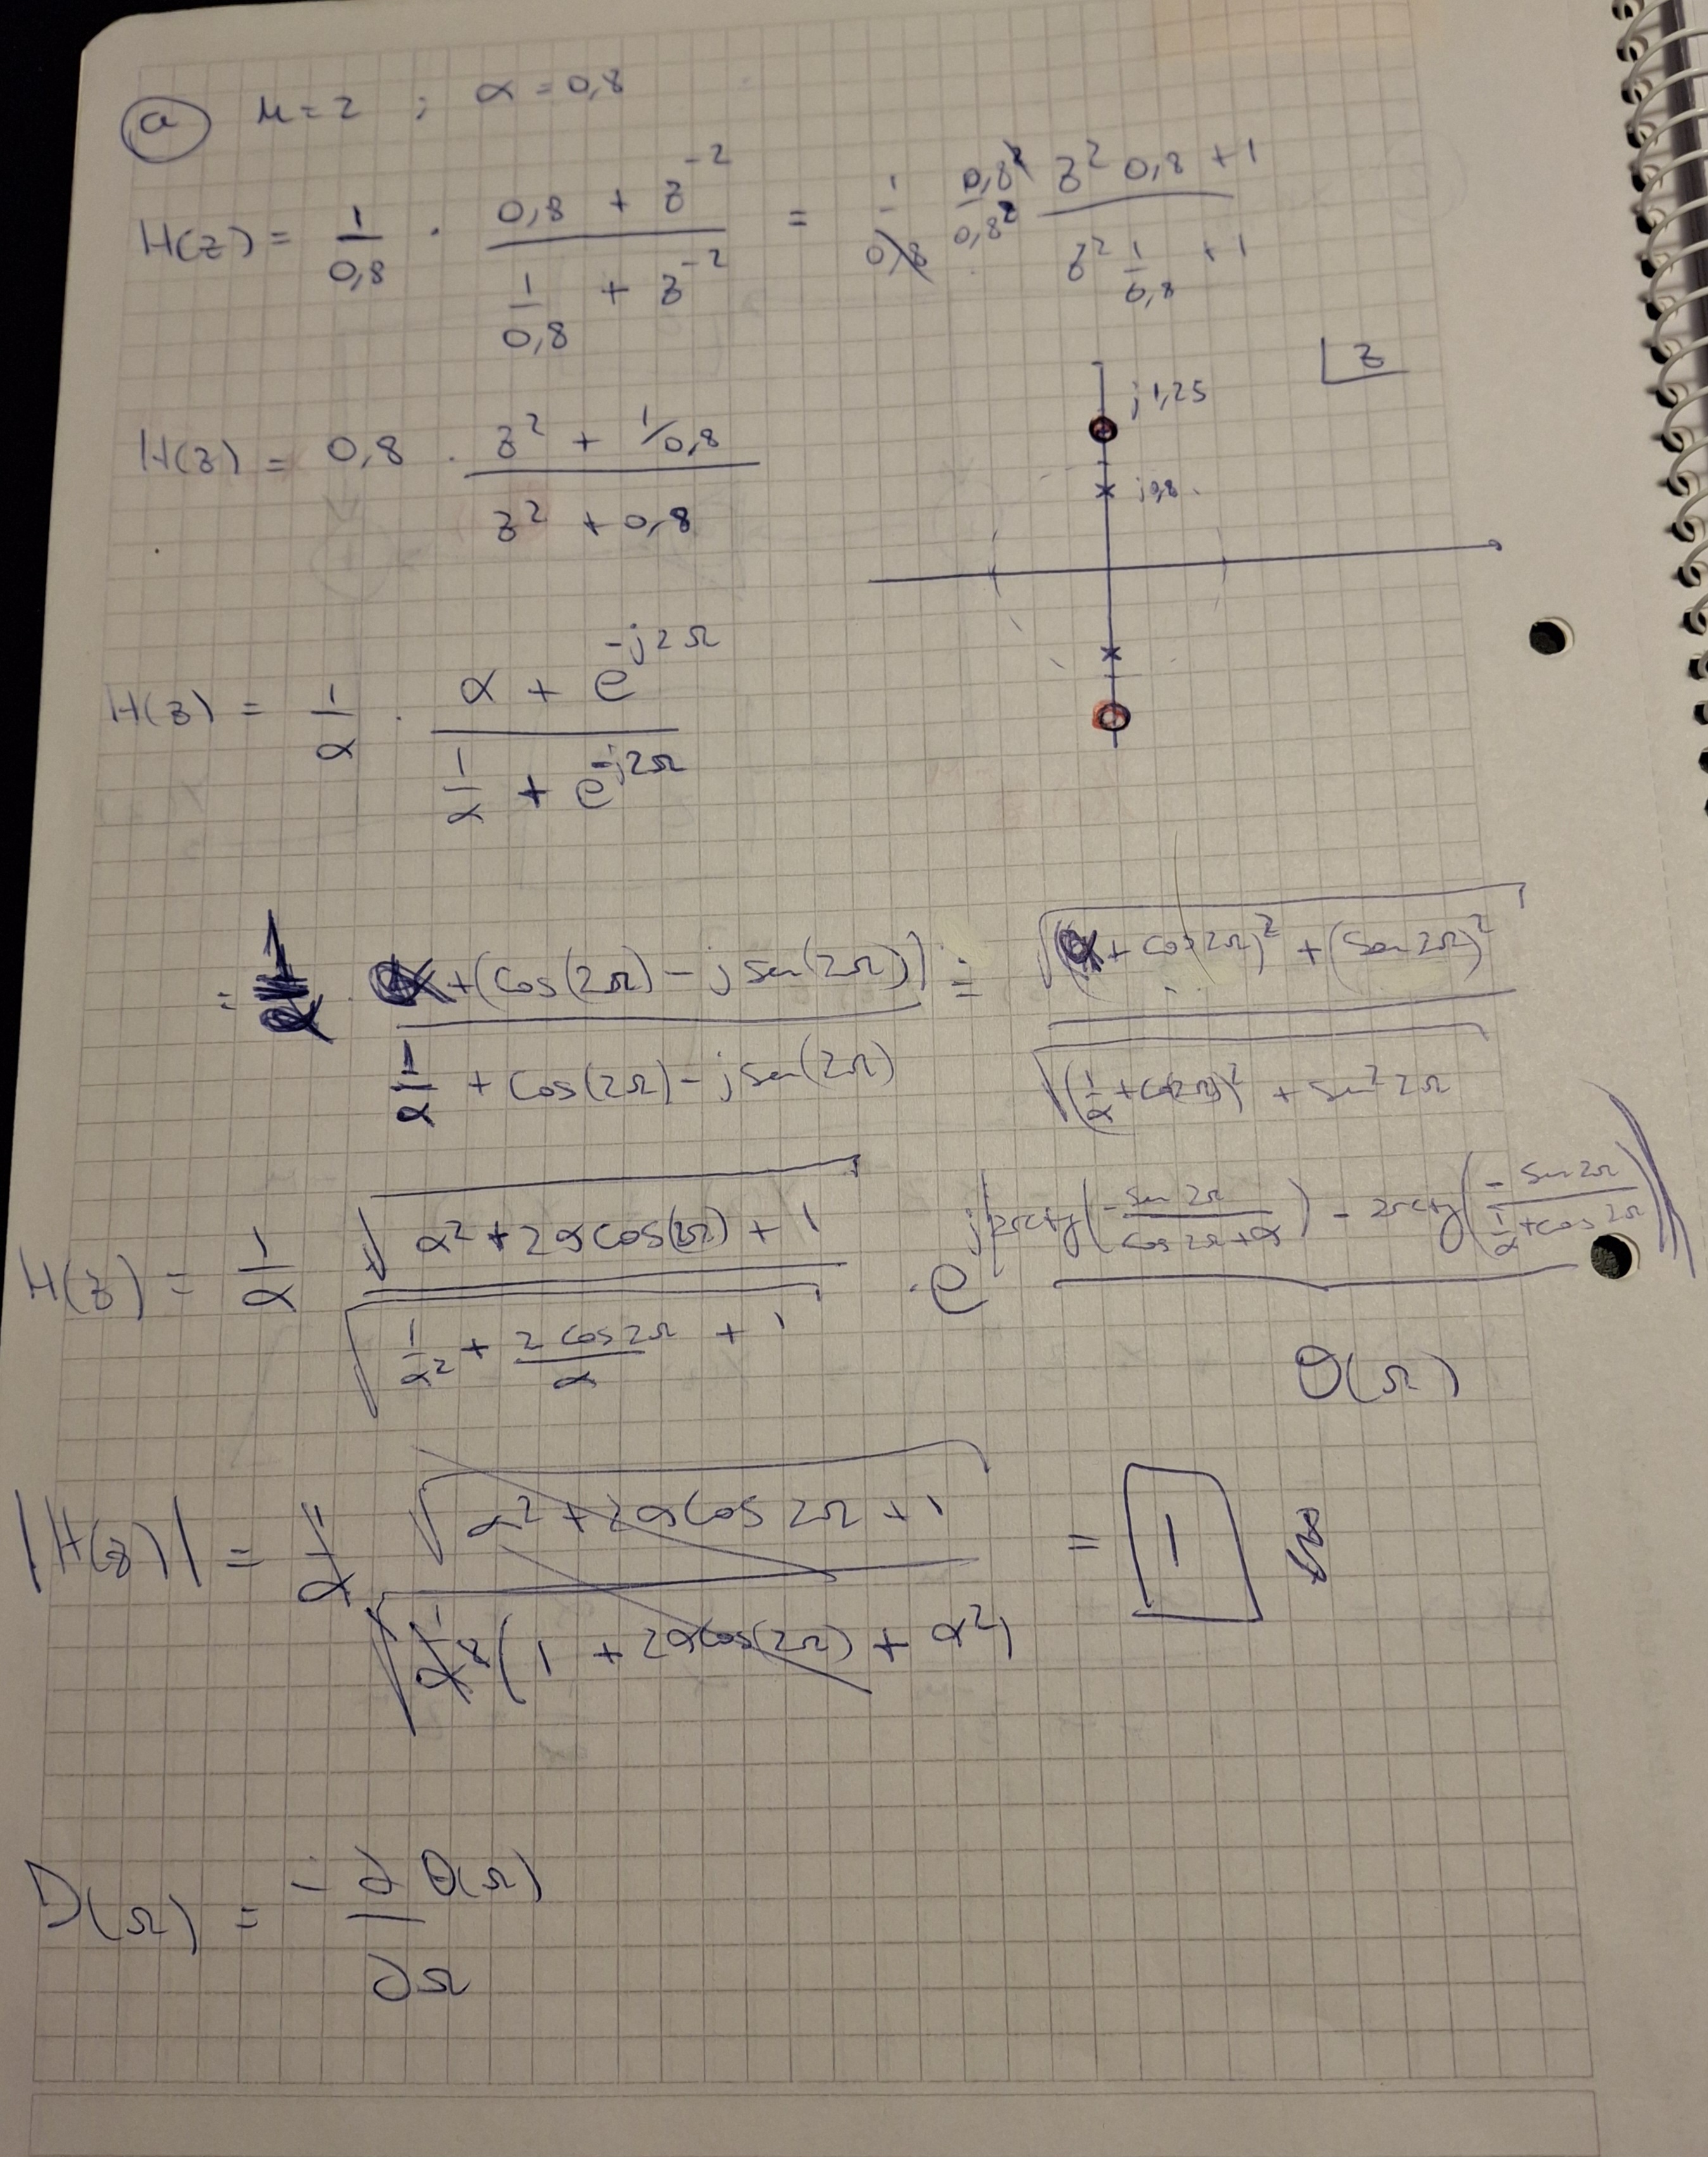 (a) μ = 2 ; α = 0,8
H(z) = 1/0,8 · (0,8 + z^-2)/(1/0,8 + z^-2) = 1/0,8 0,8^2/0,8^2 (z^2 0,8 + 1)/(z^2 1/0,8 + 1)
z
j1,25
j0,8
H(z) = 0,8 · (z^2 + 1/0,8)/(z^2 + 0,8)
H(z) = 1/α · (α + e^(-j2Ω))/(1/α + e^(-j2Ω))
= 1/α · (α + (cos(2Ω) - j sen(2Ω)))/(1/α + cos(2Ω) - j sen(2Ω)) = √((α + cos 2Ω)^2 + (sen 2Ω)^2)/√((1/α + cos 2Ω)^2 + sen^2 2Ω)
H(z) = 1/α √(α^2 + 2α cos(2Ω) + 1)/√(1/α^2 + 2 cos 2Ω/α + 1) · e^(j(arctg(-sen 2Ω/(cos 2Ω + α)) - arctg(-sen 2Ω/(1/α + cos 2Ω))))
θ(Ω)
|H(z)| = 1/α √(α^2 + 2α cos 2Ω + 1)/√(1/α^2 (1 + 2α cos(2Ω) + α^2)) = 1
D(Ω) = -∂θ(Ω)/∂Ω